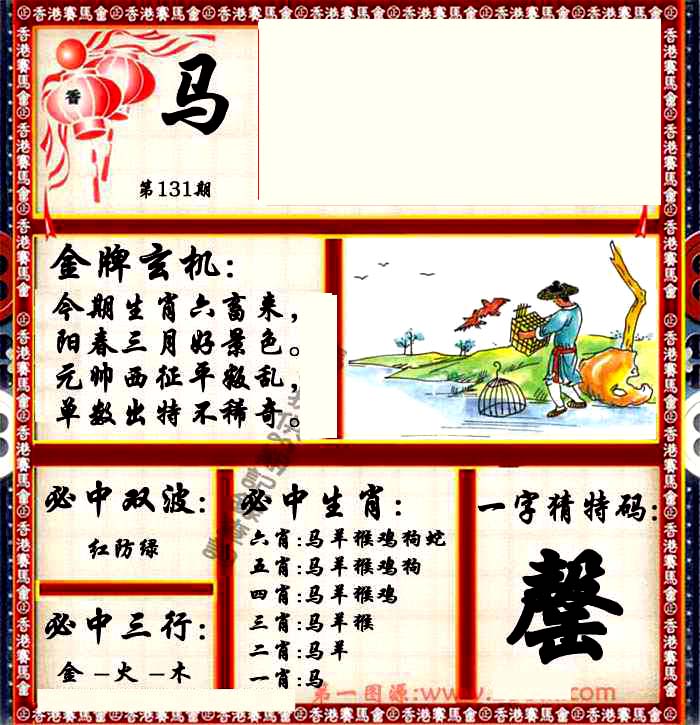 香港賽馬會
香
马
第131期
金牌玄机：
今期生肖六畜来，
阳春三月好景色。
元帅西征平叛乱，
单数出特不稀奇。
必中双波：
红防绿
必中三行：
金－火－木
必中生肖：
六肖:马羊猴鸡狗蛇
五肖:马羊猴鸡狗
四肖:马羊猴鸡
三肖:马羊猴
二肖:马羊
一肖:马
一字猜特码：
罄
第一图源:www.
com